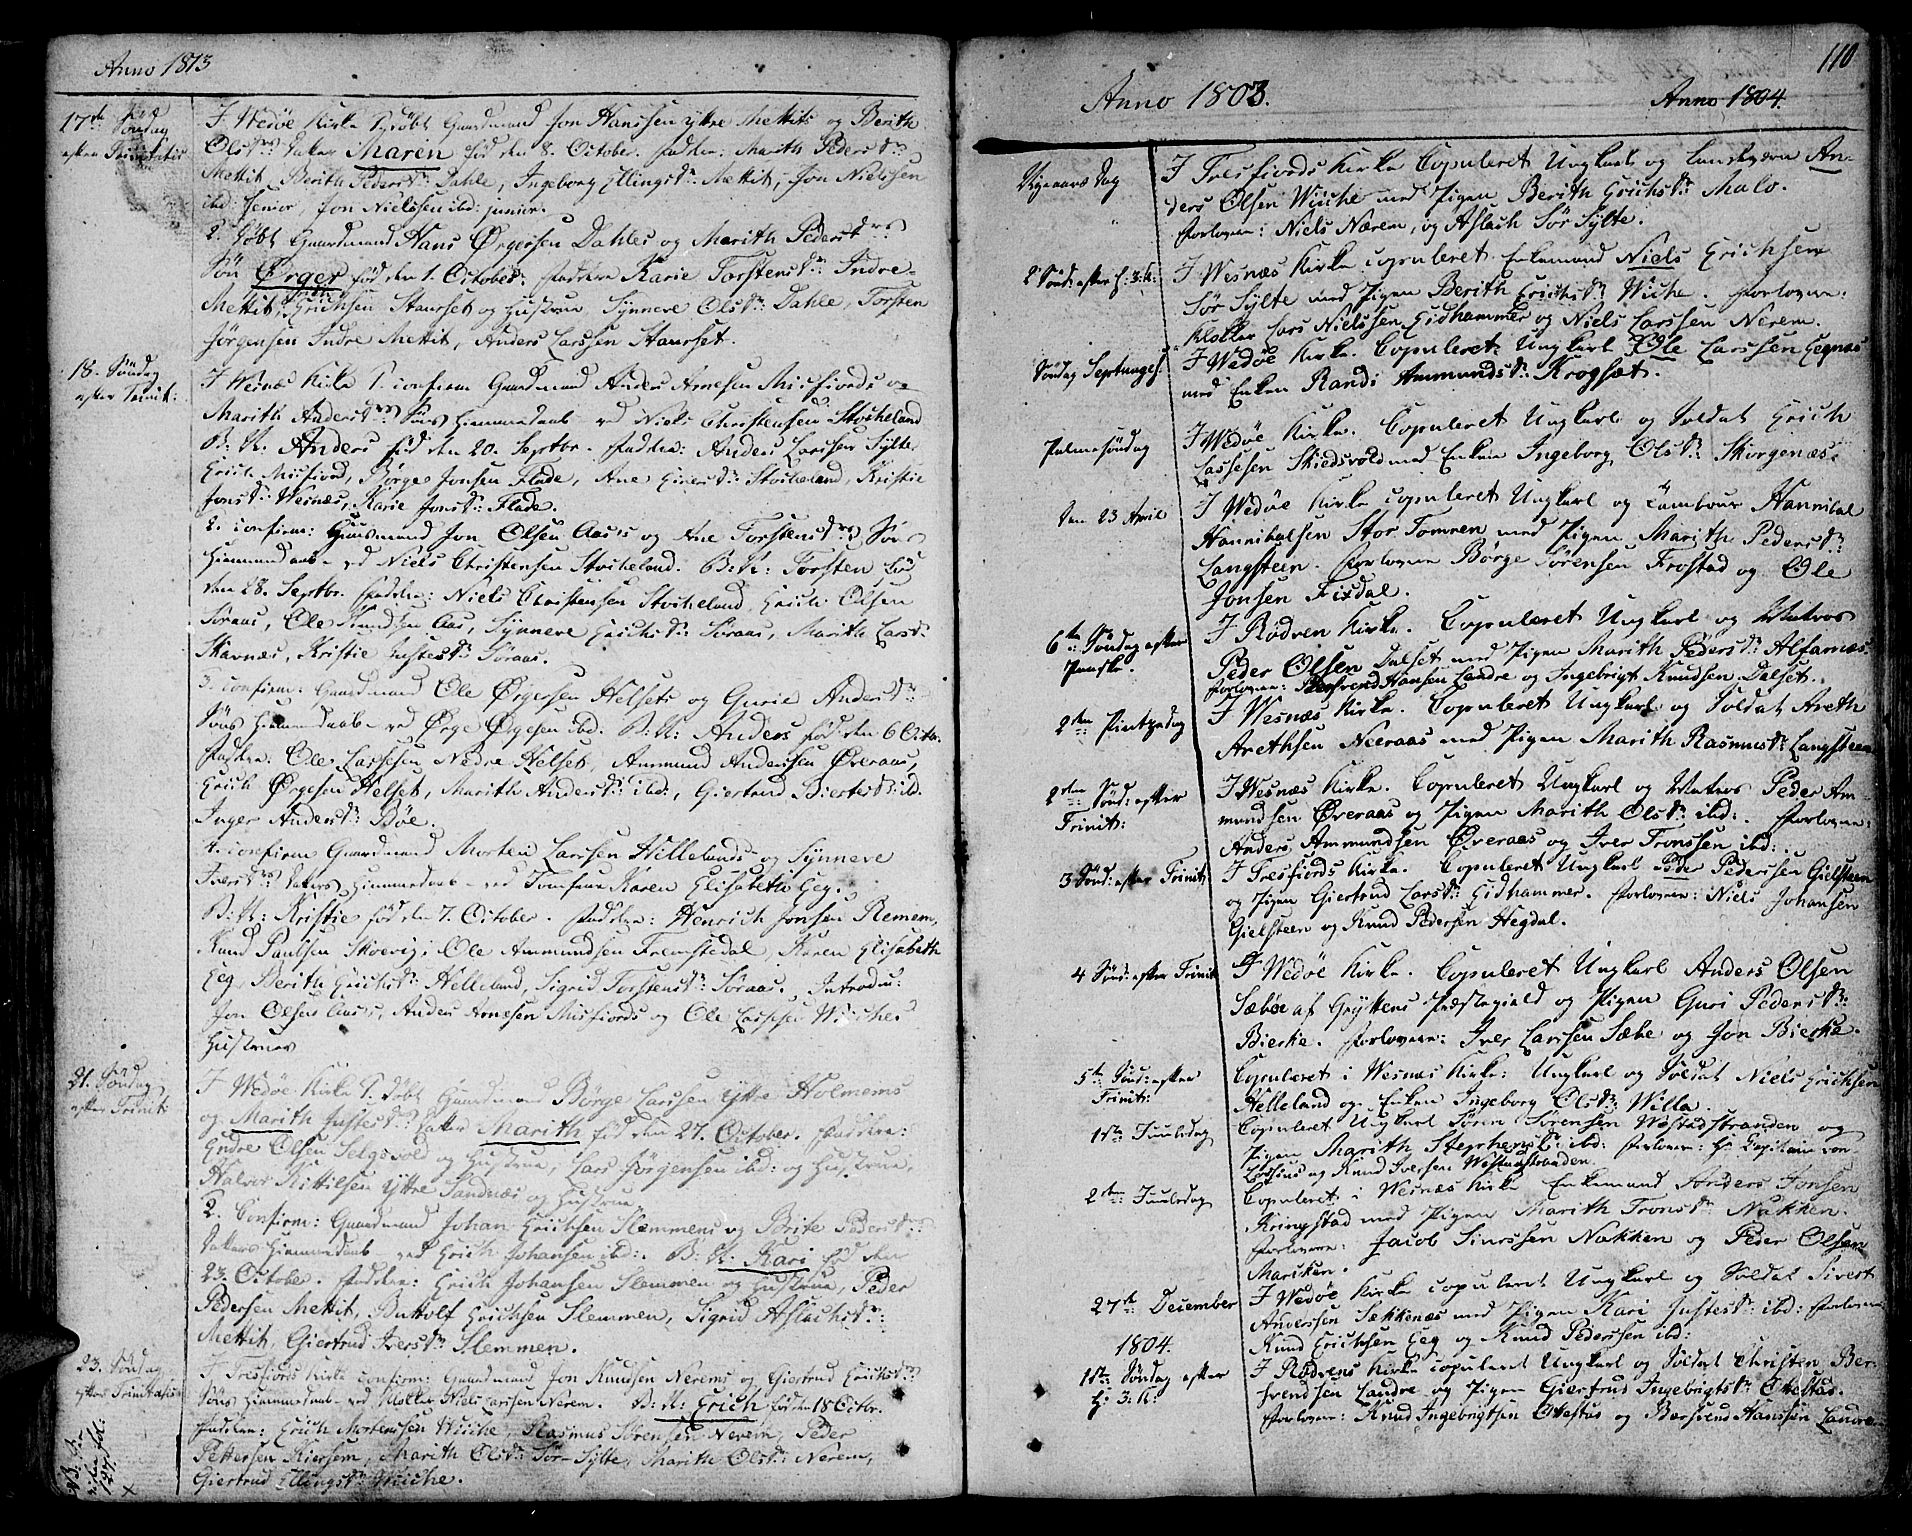 Anno 1813
17de Søndag
efter Trinitatis
I Wedöe Kirke 1. döbt Gaardmand Jon Hanssen yttre Mettets og Berith
Olsdrs Datter Maren föd den 8. October. Faddere: Marith Pedersdr
Mettit, Berith Pedersdr: Dahle, Ingeborg Ellingsdr: Mettit, Jon Nielssen
ibd: senior, Jon Nielssen ibd: junior.
2. Döbt Gaardmand Hans Ørgersen Dahles og Marith Pedersdrs
Sön Ørger föd den 1. October: Faddere Karie Torstensdr: Indre-
Mettit, Erichsen Staurset og Hustrue, Synnere Olsdr: Dahle, Torsten
Jörgensen Indre Mettit, Anders Larssen Staurset.
18. Söndag
efter Trinit:
I Wesnæs Kirke 1. confirm Gaardmand Anders Arnesen Misfiords og
Marith Andersdrs Söns Hiemmedaab ved Niels Christensen Stocheland
B: N: Anders föd den 20. Septbr. Faddere: Anders Larssen Sylte,
Erich Misfiord, Börge Jonsen Flade, Ane Einersdr: Stocheland, Kristie
Jonsdr: Wesnæs, Karie Jonsdr: Flade.
2. confirm: Huusmand Jon Olsen Aases og Ane Torstensdrs Söns
Hiemmedaab ved Niels Christensen Stocheland. B: N: Torsten, föd
den 28. Septbr. Faddere: Niels Christensen Stocheland, Erich Olsen
Soraas, Ole Knudsen Aas, Synnere Erichsdr: Soraas, Marith Larsdr:
Skavnæs, Kristie Justesdr: Soraas.
3. confirm: Gaardmand Ole Ørgersen Helsets og Gurie Andersdrs
Söns Hiemmedaab ved Ørge Ørgesen ibd. B: N: Anders föd den 6 Octo.
Faddere. Ole Larssen Nedre Helset, Ammund Anderssen Øveraas,
Erich Ørgesen Helset, Marith Andersdr: ibd:, Giertrud Biertesdr ibd.
Inger Andersdr: Böe.
4. confirm Gaardmand Morten Larssen Hellelands og Synneve
Iversdrs Datters Hiemmedaab ved Jomfrue Karen Elisabeth Eeg.
B: N: Kristie föd den 7. October. Faddere: Henrich Jonsen Remem,
Knud Paulsen Skoevig, Ole Ammundsen Fremstedal, Karen Elisabeth
Eeg Berith Erichsdr: Helleland, Sigrid Torstensdr: Soraas. Introdu:
Jon Olsen Aases, Anders Arnesen Misfiords og Ole Larssen Wiches
Hustruer
21. Söndag
efter Trinit:
I Wedöe Kirke 1. döbt Gaardmand Börge Larssen yttre Holmems
og Marith Justesdrs Datter Marith föd den 27. October. Faddere:
Endre Olsen Selgevold og Hustrue, Lars Jörgensen ibd: og Hustrue,
Halvor Kittilsen yttre Sandnæs og Hustrue
2. Confirm: Gaardmand Johan Erichsen Slemmens og Brite Pedersdrs
Datters Hiemmedaab ved Erich Johansen ibd: B: N: Kari föd den
23. October. Faddere: Erich Johansen Slemmen og Hustrue, Peder
Pedersen Mettit, Buttolf Erichsen Slemmen, Sigrid Aslachsdr:
Mettit, Giertrud Iversdr: Slemmen.
23. Söndag
efter Trinitatis
I Tresfiords Kirke confirm: Gaardmand Jon Knudsen Nerems og Giertrud Erichsdrs
Söns Hiemmedaab ved Klokker Niels Larssen Nerem. B: N: Erich föd den 18 Octbr.
Faddere: Erich Mortenssen Wiiche, Rasmus Sörensen Nerem, Peder
Pettersen Kiersem, Marith Olsdr: Sör-Sylte, Marith Olsdr: Nerem,
Giertrud Ellingsdr: Wiiche.
127.
110
Anno 1803.
Anno 1804.
Nyeaars Dag
I Tresfiords Kirke Copuleret Ungkarl og Landværn An-
ders Olsen Wiiche med Pigen Berith Erichsdr: Malo.
Forlovere: Niels Nærem, og Aslach Sör Sylte.
2 Sönd: efter H. 3. K:
I Wesnæs Kirke copuleret Enkemand Niels Erichsen
Sör Sylte med Pigen Berith Erichsdr Wiche. Forlovere:
Klokker Lars Nielssen Gidhammer og Niels Larssen Nerem.
Söndag Septuages.
I Wedöe Kirke. Copuleret: Ungkarl Ole Larssen Gegnæs
med Enken Randi Ammundsdr: Krogsæt.
Palmesöndag
I Wedöe Kirke. Copuleret Ungkarl og Soldat Erich
Lassesen Skiedsvold med Enken Ingeborg Olsdr: Skorgenæs.
Den 23 April
I Wedöe Kirke copuleret Ungkarl og Tambour Hannibal
Hannibalsen Stor Tomren med Pigen Marith Pedersdr:
Langsteen. Forlovere Börge Sörensen Frostad og Ole
Jonsen Fixdal.
6te Söndag efter
Paaske.
I Rödven Kirke. Copuleret Ungkarl og Matros
Peder Olsen Dalset med Pigen Marith Pedersdr: Alfarnæs
Forlovere: Bersvend Hansen Landre og Ingebrigt Knudsen Dalset.
2den Pintzedag
I Wesnæs Kirke. Copuleret Ungkarl og Soldat Areth
Arethsen Neeraas med Pigen Marith Rasmusdr: Langsteen
2den Sönd: efter
Trinit:
I Wesnæs Kirke. Copuleret Ungkarl og Matros Peder Am-
mundsen Øveraas og Pigen Marith Olsdr: ibd:. Forlovere:
Anders Ammundsen Øveraas og Iver Tronssen ibd:
3 Sönd: efter Trinit:
I Tresfiords Kirke. Copuleret Ungkarl Peder Pedersen Gielsteen
og Pigen Giertrud Larsdr: Gidhammer. Forlovere: Niels Johansen
Gielsteen og Knud Pedersen Hegdal.
4 Sönd: efter Trinit:
I Wedöe Kirke. Copuleret Ungkarl Anders Olsen
Sæböe af Gryttens Præstegield og Pigen Guri Pedersdr:
Bierke. Forlovere: Iver Larssen Sæbe og Jon Bierke.
5te Sönd: efter
Trinit:
Copuleret i Wesnæs Kirke: Ungkarl og Soldat Niels Erichsen
Helleland og Enken Ingeborg Olsdr: Willa.
1ste Juuledag
Copuleret Ungkarl Sören Sörensen Westadstranden og
Pigen Marith Stephensdr: ibd: Forlovere: Hr Capitain von
og Knud Iversen Westadstranden.
2den Juuledag
Copuleret i Wesnæs Kirke Enkemand Anders Jonsen
Kringstad med Pigen Marith Tronsdr: Nakken.
Forlovere: Jacob Sinessen Nakken og Peder Olsen
Mariken.
27de December
I Wedöe Kirke copuleret Ungkarl og Soldat Sivert
Anderssen Sækkenæs med Pigen Kari Justesdr: ibd: Forlovere
Knud Erichsen Eeg og Knud Pederssen ibd:
1804.
1ste Söndag efter
H: 3: K:
I Rödvens Kirke copuleret Ungkarl og Soldat Christen Ber-
svendsen Landre og Pigen Giertrud Ingebrigtsdr: Otestad.
Forlovere: Knud Ingebrigtsen Otestad og Bersvend Hanssen Landre